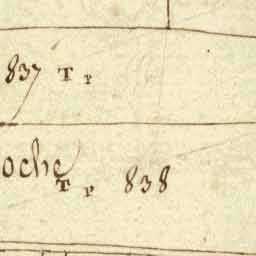 837 T P
oche T P 838